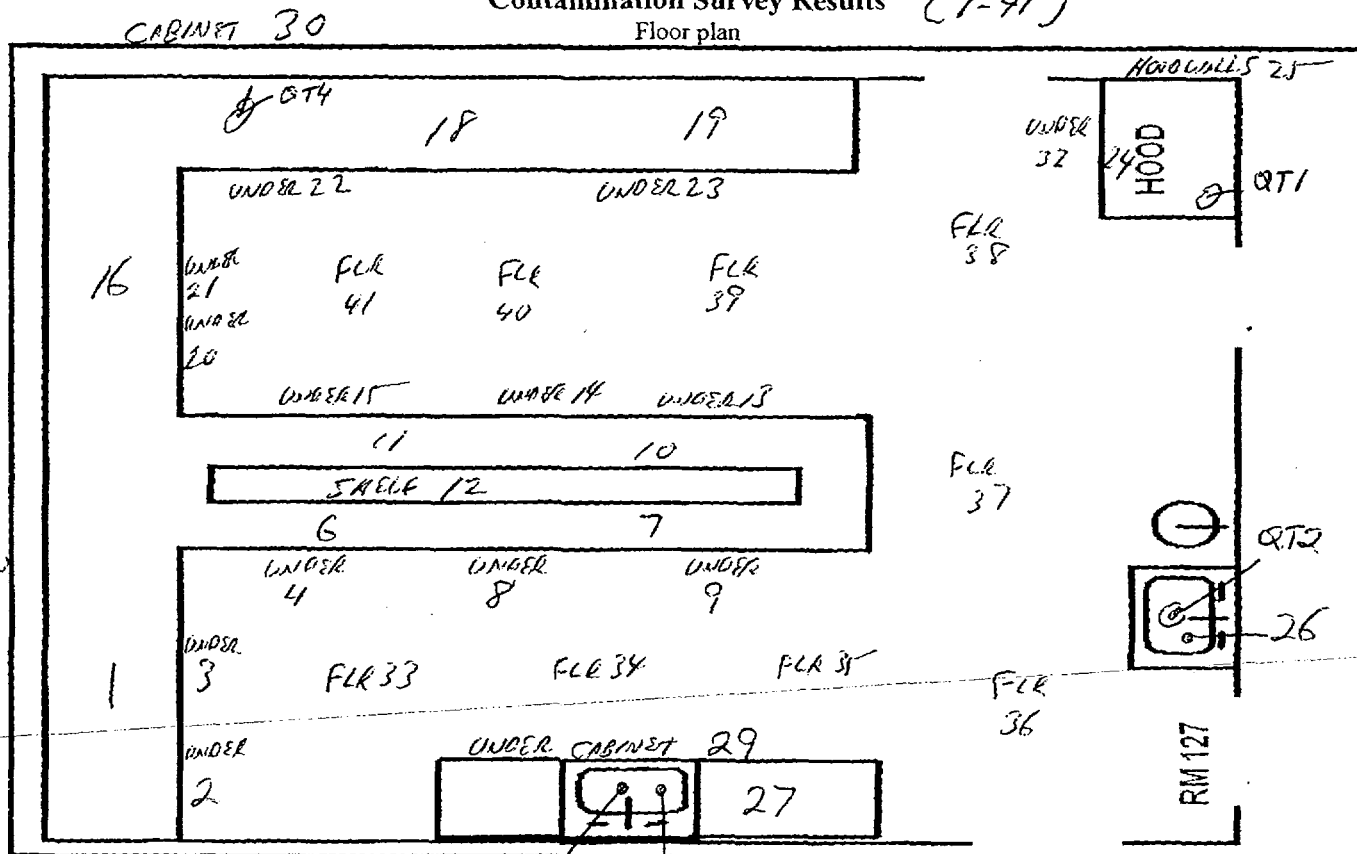 Contamination Survey Results (1-41)
Floor plan
CABINET 30
HOOD WALLS 25
QT4
18
19
UNDER
32
24
HOOD
QT1
UNDER 22
UNDER 23
FLR
38
16
UNDER
21
FLR
41
FLR
40
FLR
39
UNDER
20
UNDER 15
UNDER 14
UNDER 13
11
10
SHELF 12
FLR
37
6
7
QT2
UNDER
4
UNDER
8
UNDER
9
26
1
UNDER
3
FLR 33
FLR 34
FLR 35
FLR
36
UNDER
2
UNDER CABINET 29
27
RM 127